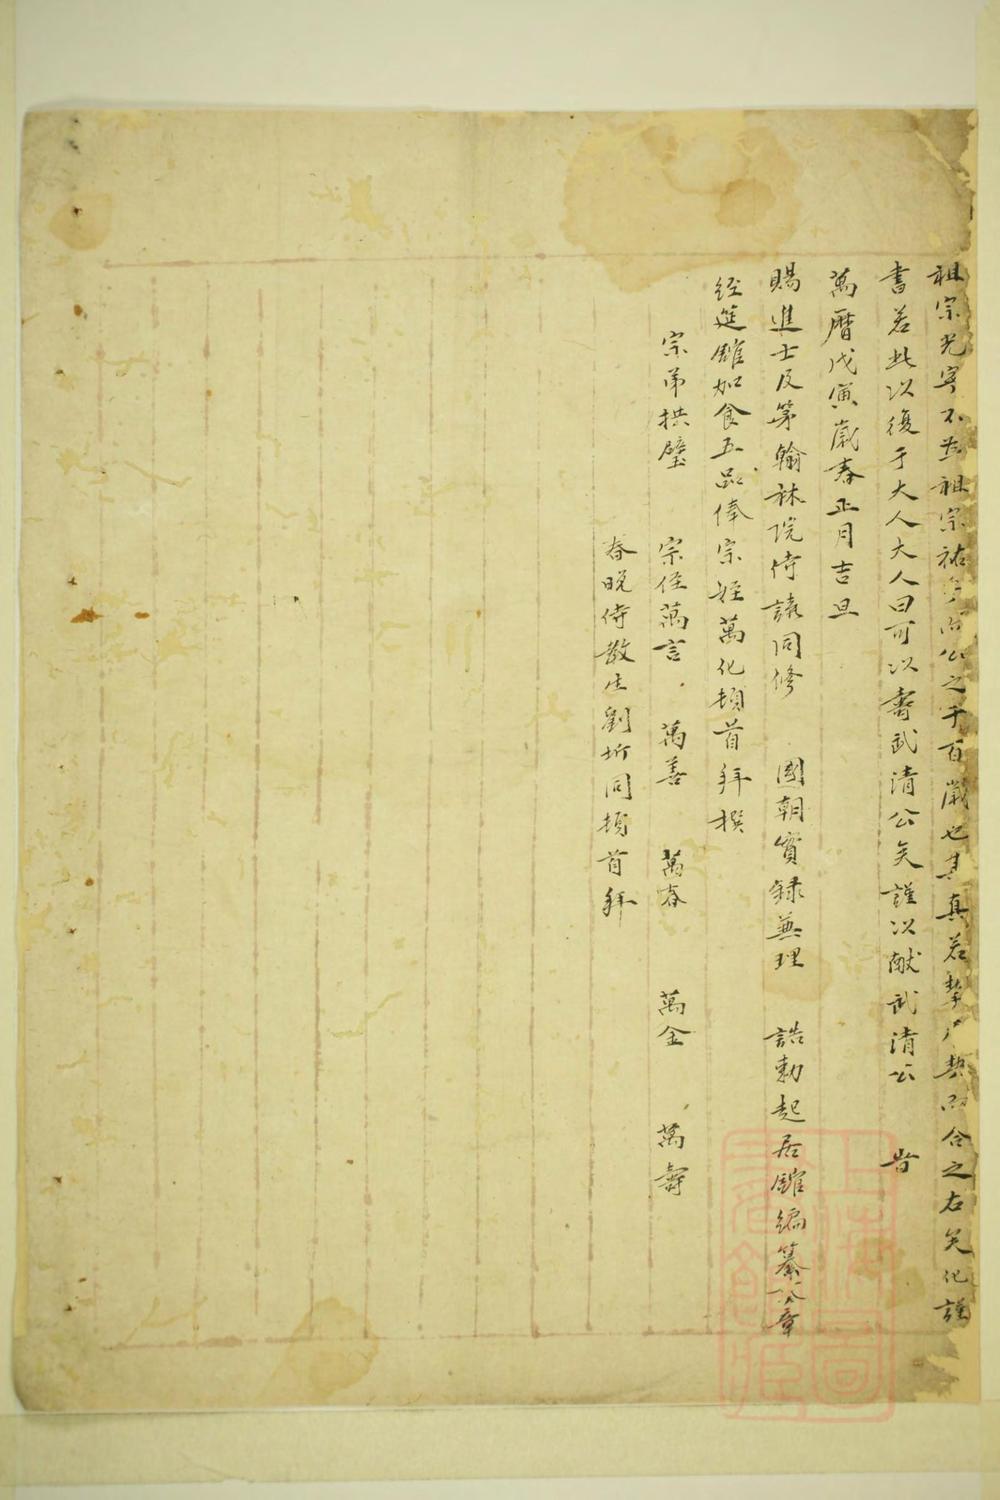 祖宗光寧不並祖宗祐公之千百歲也其真若擊契而合之右矣化謹
書若此以復于大人大人曰可以壽武清公矣謹以獻武清公 皆
萬曆戊寅歲春正月吉旦
賜進士及第翰林院侍讀同修 國朝實錄兼理 誥勅起居館編纂章
經筵館加食五品俸宗姪萬化頓首拜撰
宗弟拱璧 宗侄萬言 萬善 萬春 萬金 萬壽
眷晚侍教生劉圻同頓首拜
上海圖書館藏